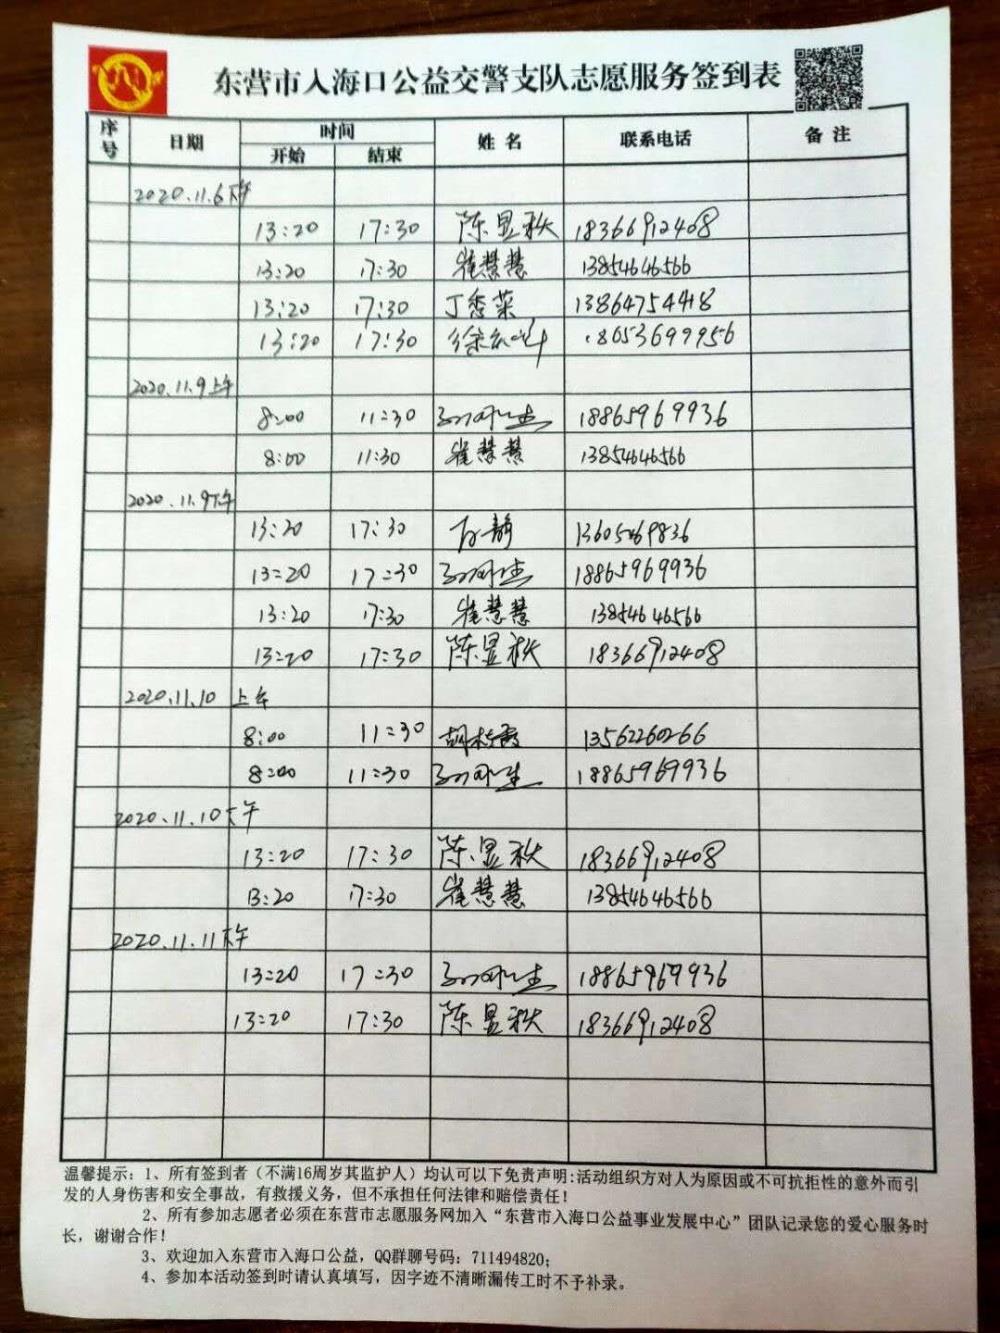 东营市入海口公益交警支队志愿服务签到表
序号 日期 时间 姓名 联系电话 备注
开始 结束
2020.11.6下午
13:20 17:30 陈昱秩 18366912408
13:20 17:30 崔慧慧 13854646566
13:20 17:30 丁秀菜 13864754418
13:20 17:30 18653699956
2020.11.9上午
8:00 11:30 18865969936
8:00 11:30 崔慧慧 13854646566
2020.11.9下午
13:20 17:30 静 13605469836
13:20 17:30 18865969936
13:20 17:30 崔慧慧 13854646566
13:20 17:30 陈昱秩 18366912408
2020.11.10 上午
8:00 11:30 胡 13562260266
8:00 11:30 18865969936
2020.11.10下午
13:20 17:30 陈昱秩 18366912408
13:20 17:30 崔慧慧 13854646566
2020.11.11下午
13:20 17:30 18865969936
13:20 17:30 陈昱秩 18366912408
温馨提示：1、所有签到者（不满16周岁其监护人）均认可以下免责声明:活动组织方对人为原因或不可抗拒性的意外而引
发的人身伤害和安全事故，有救援义务，但不承担任何法律和赔偿责任！
2、所有参加志愿者必须在东营市志愿服务网加入“东营市入海口公益事业发展中心”团队记录您的爱心服务时
长，谢谢合作！
3、欢迎加入东营市入海口公益，QQ群聊号码：711494820；
4、参加本活动签到时请认真填写，因字迹不清晰漏传工时不予补录。